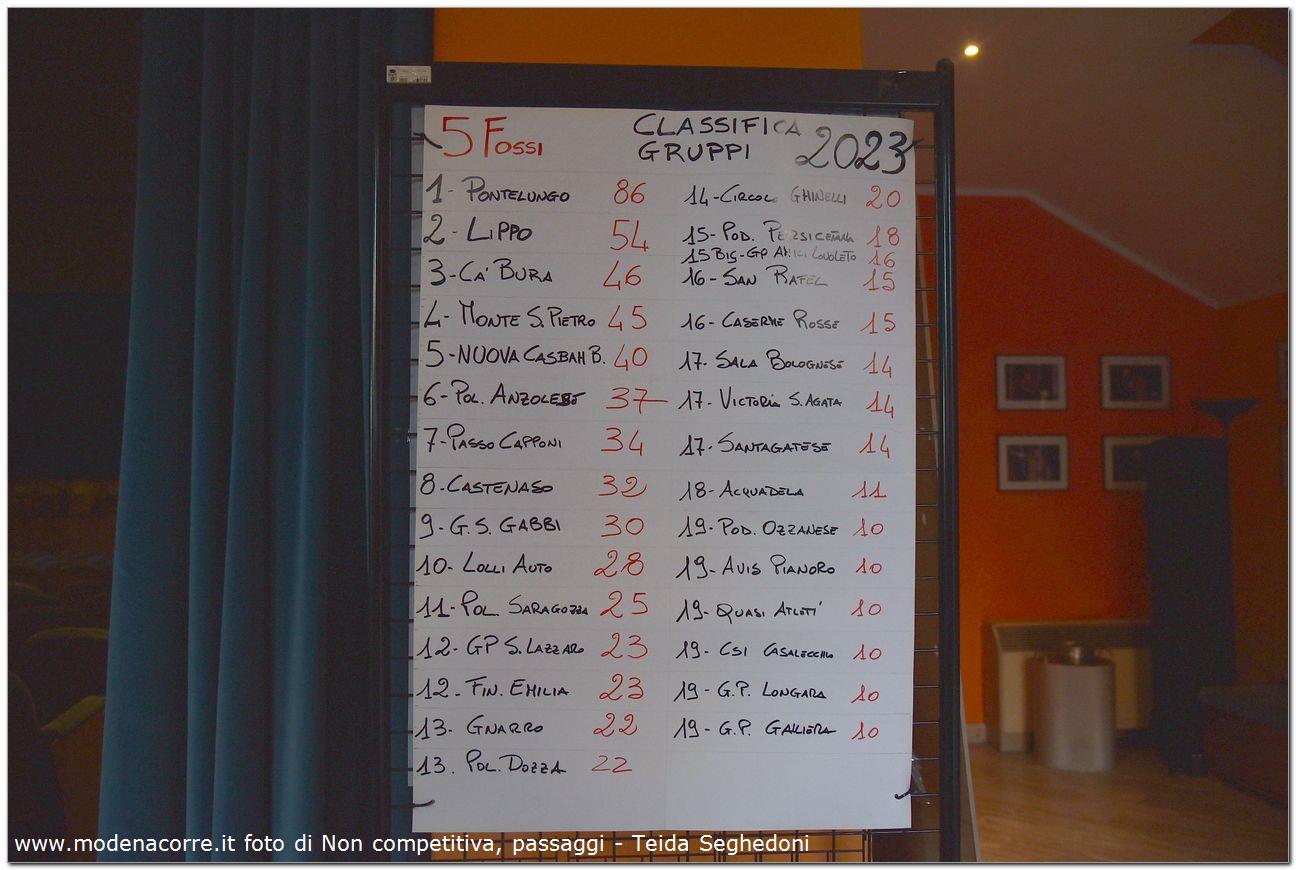 5 FOSSI
CLASSIFICA
GRUPPI
2023
1- PONTELUNGO 86
2- LIPPO 54
3-CA' BURA 46
4- MONTE S. PIETRO 45
5-NUOVA CASBAH B. 40
6- POL. ANZOLESE 37
7-PASSO CAPPONI 34
8-CASTENASO 32
9- G.S. GABBI 30
10- LOLLI AUTO 28
11- POL SARAGOZZA 25
12- GP S. LAZZARO 23
12- FIN. EMILIA 23
13- GNARRO 22
13. POL. DOZZA 22
14-CIRCOLO GHINELLI 20
15-POD. PERSICETANA 18
15BIS-GP AMICI LOVOLETO 16
16- SAN RAFEL 15
16- CASERME ROSSE 15
17- SALA BOLOGNESE 14
17- VICTORIA S. AGATA 14
17- SANTAGATESE 14
18- ACQUADELA 11
19- POD. OZZANESE 10
19- AVIS PIANORO 10
19- QUASI ATLETI' 10
19- CSI CASALECCHIO 10
19- G.P. LONGARA 10
19- G.P. GALLIERA 10
www.modenacorre.it foto di Non competitiva, passaggi - Teida Seghedoni